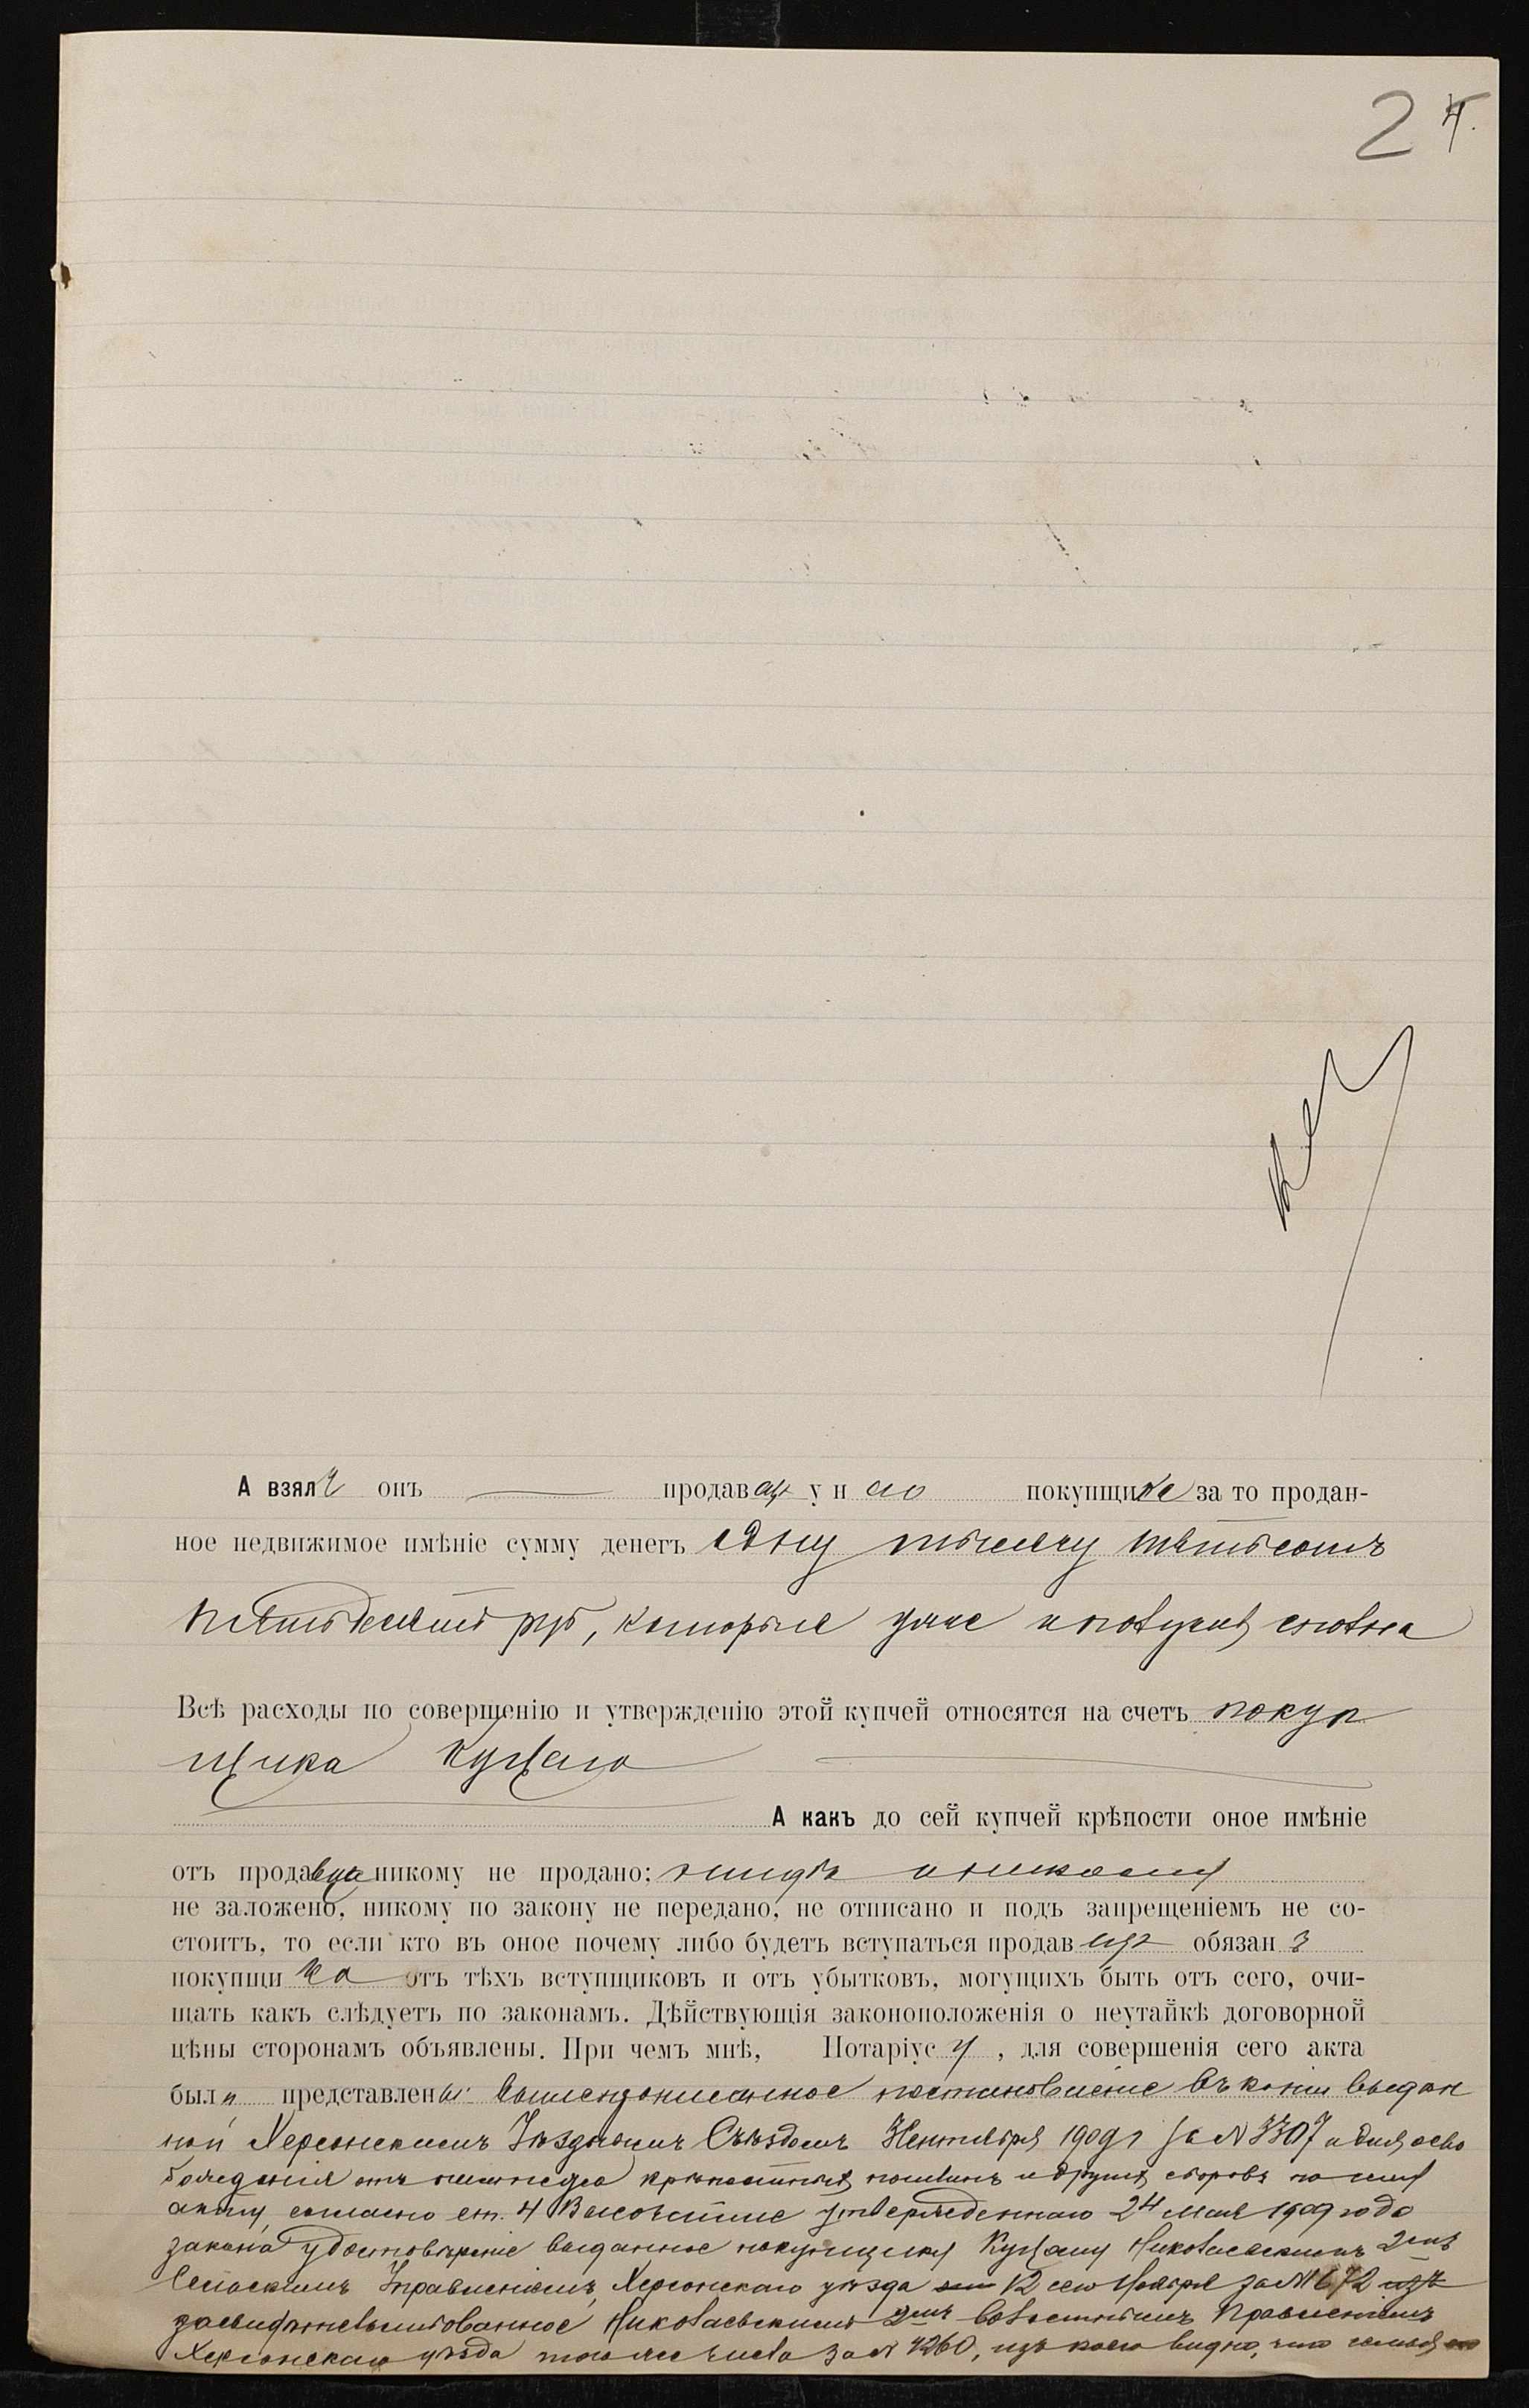 24.
А взялъ онъ продавецъ у него покупщика за то продан-
ное недвижимое имѣніе сумму денегъ одну тысячу пятьсотъ
пятьдесятъ руб, которые уже и получилъ сполна
Всѣ расходы по совершенію и утвержденію этой купчей относятся на счетъ покуп
щика Куцаго
А какъ до сей купчей крѣпости оное имѣніе
отъ продавца никому не продано; нигдѣ и никому
не заложено, никому по закону не передано, не отписано и подъ запрещеніемъ не со-
стоитъ, то если кто въ оное почему либо будетъ вступаться продавецъ обязанъ
покупщика отъ тѣхъ вступщиковъ и отъ убытковъ, могущихъ быть отъ сего, очи-
щать какъ слѣдуетъ по законамъ. Дѣйствующія законоположенія о неутайкѣ договорной
цѣны сторонамъ объявлены. При чемъ мнѣ, Нотаріусу, для совершенія сего акта
были представлены: постановленіе въ копіи выдан
ной Херсонскимъ Уѣзднымъ Съѣздомъ Сентября 1909 г за N 3307 и для осво
божденія отъ платежа крѣпостныхъ пошлинъ и другихъ сборовъ по сему
акту, согласно ст. 4 Высочайше утвержденнаго 24 Мая 1909 года
закона удостовѣреніе выданное покупщику Куцему Николаевскимъ 2мъ
Сельскимъ Управленіемъ, Херсонскаго уѣзда 12 сего Ноября за N 672
засвидѣтельствованное Николаевскимъ 2мъ Волостнымъ Правленіемъ
Херсонскаго уѣзда того же числа за N 4260, изъ коего видно, что